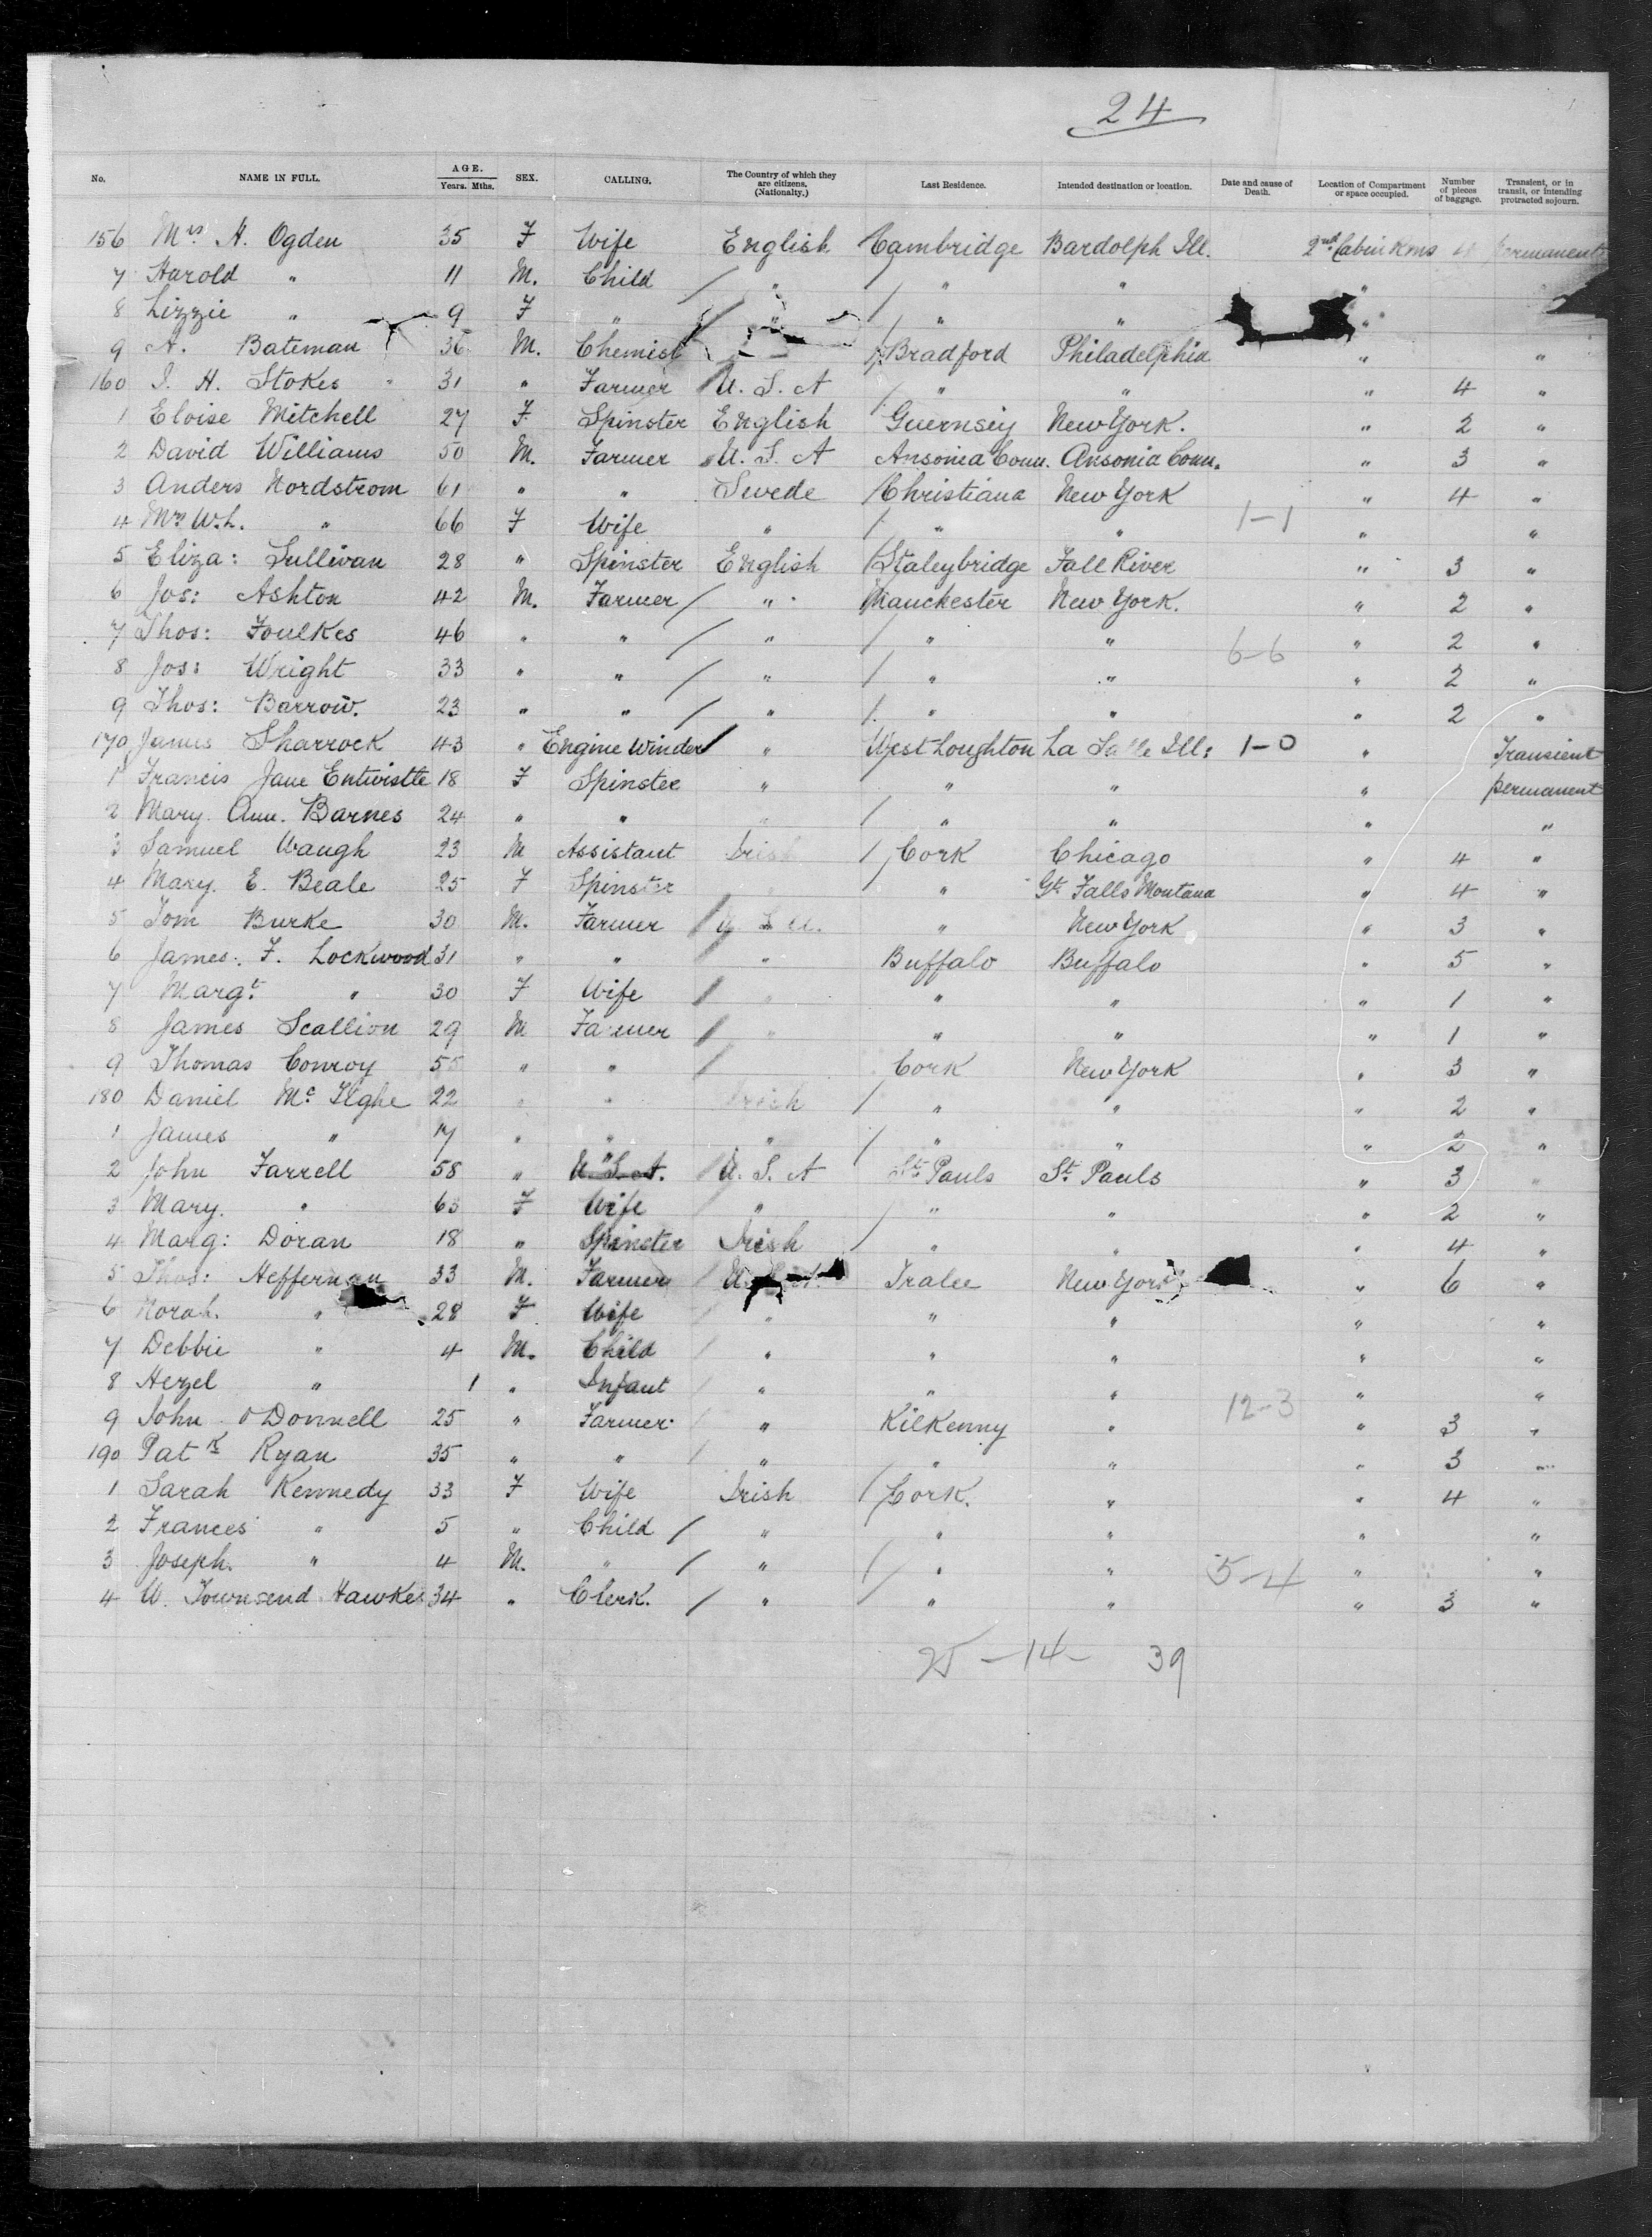 24
No. NAME IN FULL. AGE. Years. Mths. SEX. CALLING. The Country of which they are citizens. (Nationalty.) Last Residence. Intended destination or location. Date and cause of Death. Location of Compartment or space occupied. Number of pieces of baggage. Transient, or in transit, or intending protracted sojourn.
156 Mrs. H. Ogden 35 F Wife English Cambridge Bardolph Ill. 2nd Cabin Rms 4 permanent
7 Harold " 11 M. Child / " / " " "
8 Lizzie " 9 F " / " / " " "
9 A. Bateman 36 M. Chemist / Bradford Philadelphia " "
160 J. H. Stokes 31 " Farmer U. S. A / " " " 4 "
1 Eloise Mitchell 27 F Spinster English Guernsey New York. " 2 "
2 David Williams 50 M. Farmer U. S. A Ansonia Conn. Ansonia Conn. " 3 "
3 Anders Nordstrom 61 " " Swede / Christiana New York " 4 "
4 Mrs W.L. " 66 F Wife " / " " 1-1 " "
5 Eliza: Sullivan 28 " Spinster English / Staleybridge Fall River " 3 "
6 Jos: Ashton 42 M. Farmer / " Manchester New York. " 2 "
7 Thos: Foulkes 46 " " / " / " " 6-6 " 2 "
8 Jos: Wright 33 " " / " / " " " 2 "
9 Thos: Barrow. 23 " " / " / " " " 2 "
170 James Sharrock 43 " Engine Winder / " West Loughton La Salle Ill: 1-0 " Transient
1 Francis Jane Entwistle 18 F Spinster " " " " permanent
2 Mary. Ann. Barnes 24 " " " / " " " "
3 Samuel Waugh 23 M Assistant Irish / Cork Chicago " 4 "
4 Mary. E. Beale 25 F Spinster " / " Gt. Falls Montana " 4 "
5 Tom Burke 30 M. Farmer / U S A. " New York " 3 "
6 James. F. Lockwood 31 " " / " Buffalo Buffalo " 5 "
7 Margt. " 30 F Wife / " " " " 1 "
8 James Scallion 29 M Farmer / " " " " 1 "
9 Thomas Conroy 55 " " / Cork New York " 3 "
180 Daniel Mc 22 " " Irish / " " " 2 "
1 James " 17 " " " / " " " 2 "
2 John Farrell 58 " U. S. A. / U. S. A St. Pauls St. Pauls " 3 "
3 Mary. " 63 F Wife " / " " " 2 "
4 Marg: Doran 18 " Spinster Irish / " " " 4 "
5 Thos: Heffernan 33 M. Farmer / U. S. A. Tralee New York " 6 "
6 Norah. " 28 F Wife / " " " " "
7 Debbie " 4 M. Child / " " " " "
8 Hezel " 1 " Infant / " " " " "
9 John O'Donnell 25 " Farmer / " Kilkenny " 12-3 " 3 "
190 Patk Ryan 35 " " / " " " " 3 "
1 Sarah Kennedy 33 F Wife Irish / Cork. " " 4 "
2 Frances " 5 " Child / " " " " "
3 Joseph. " 4 M. " / " / " " 5-4 " "
4 W. Townsend Hawkes 34 " Clerk. / " / " " " 3 "
25 - 14 - 39